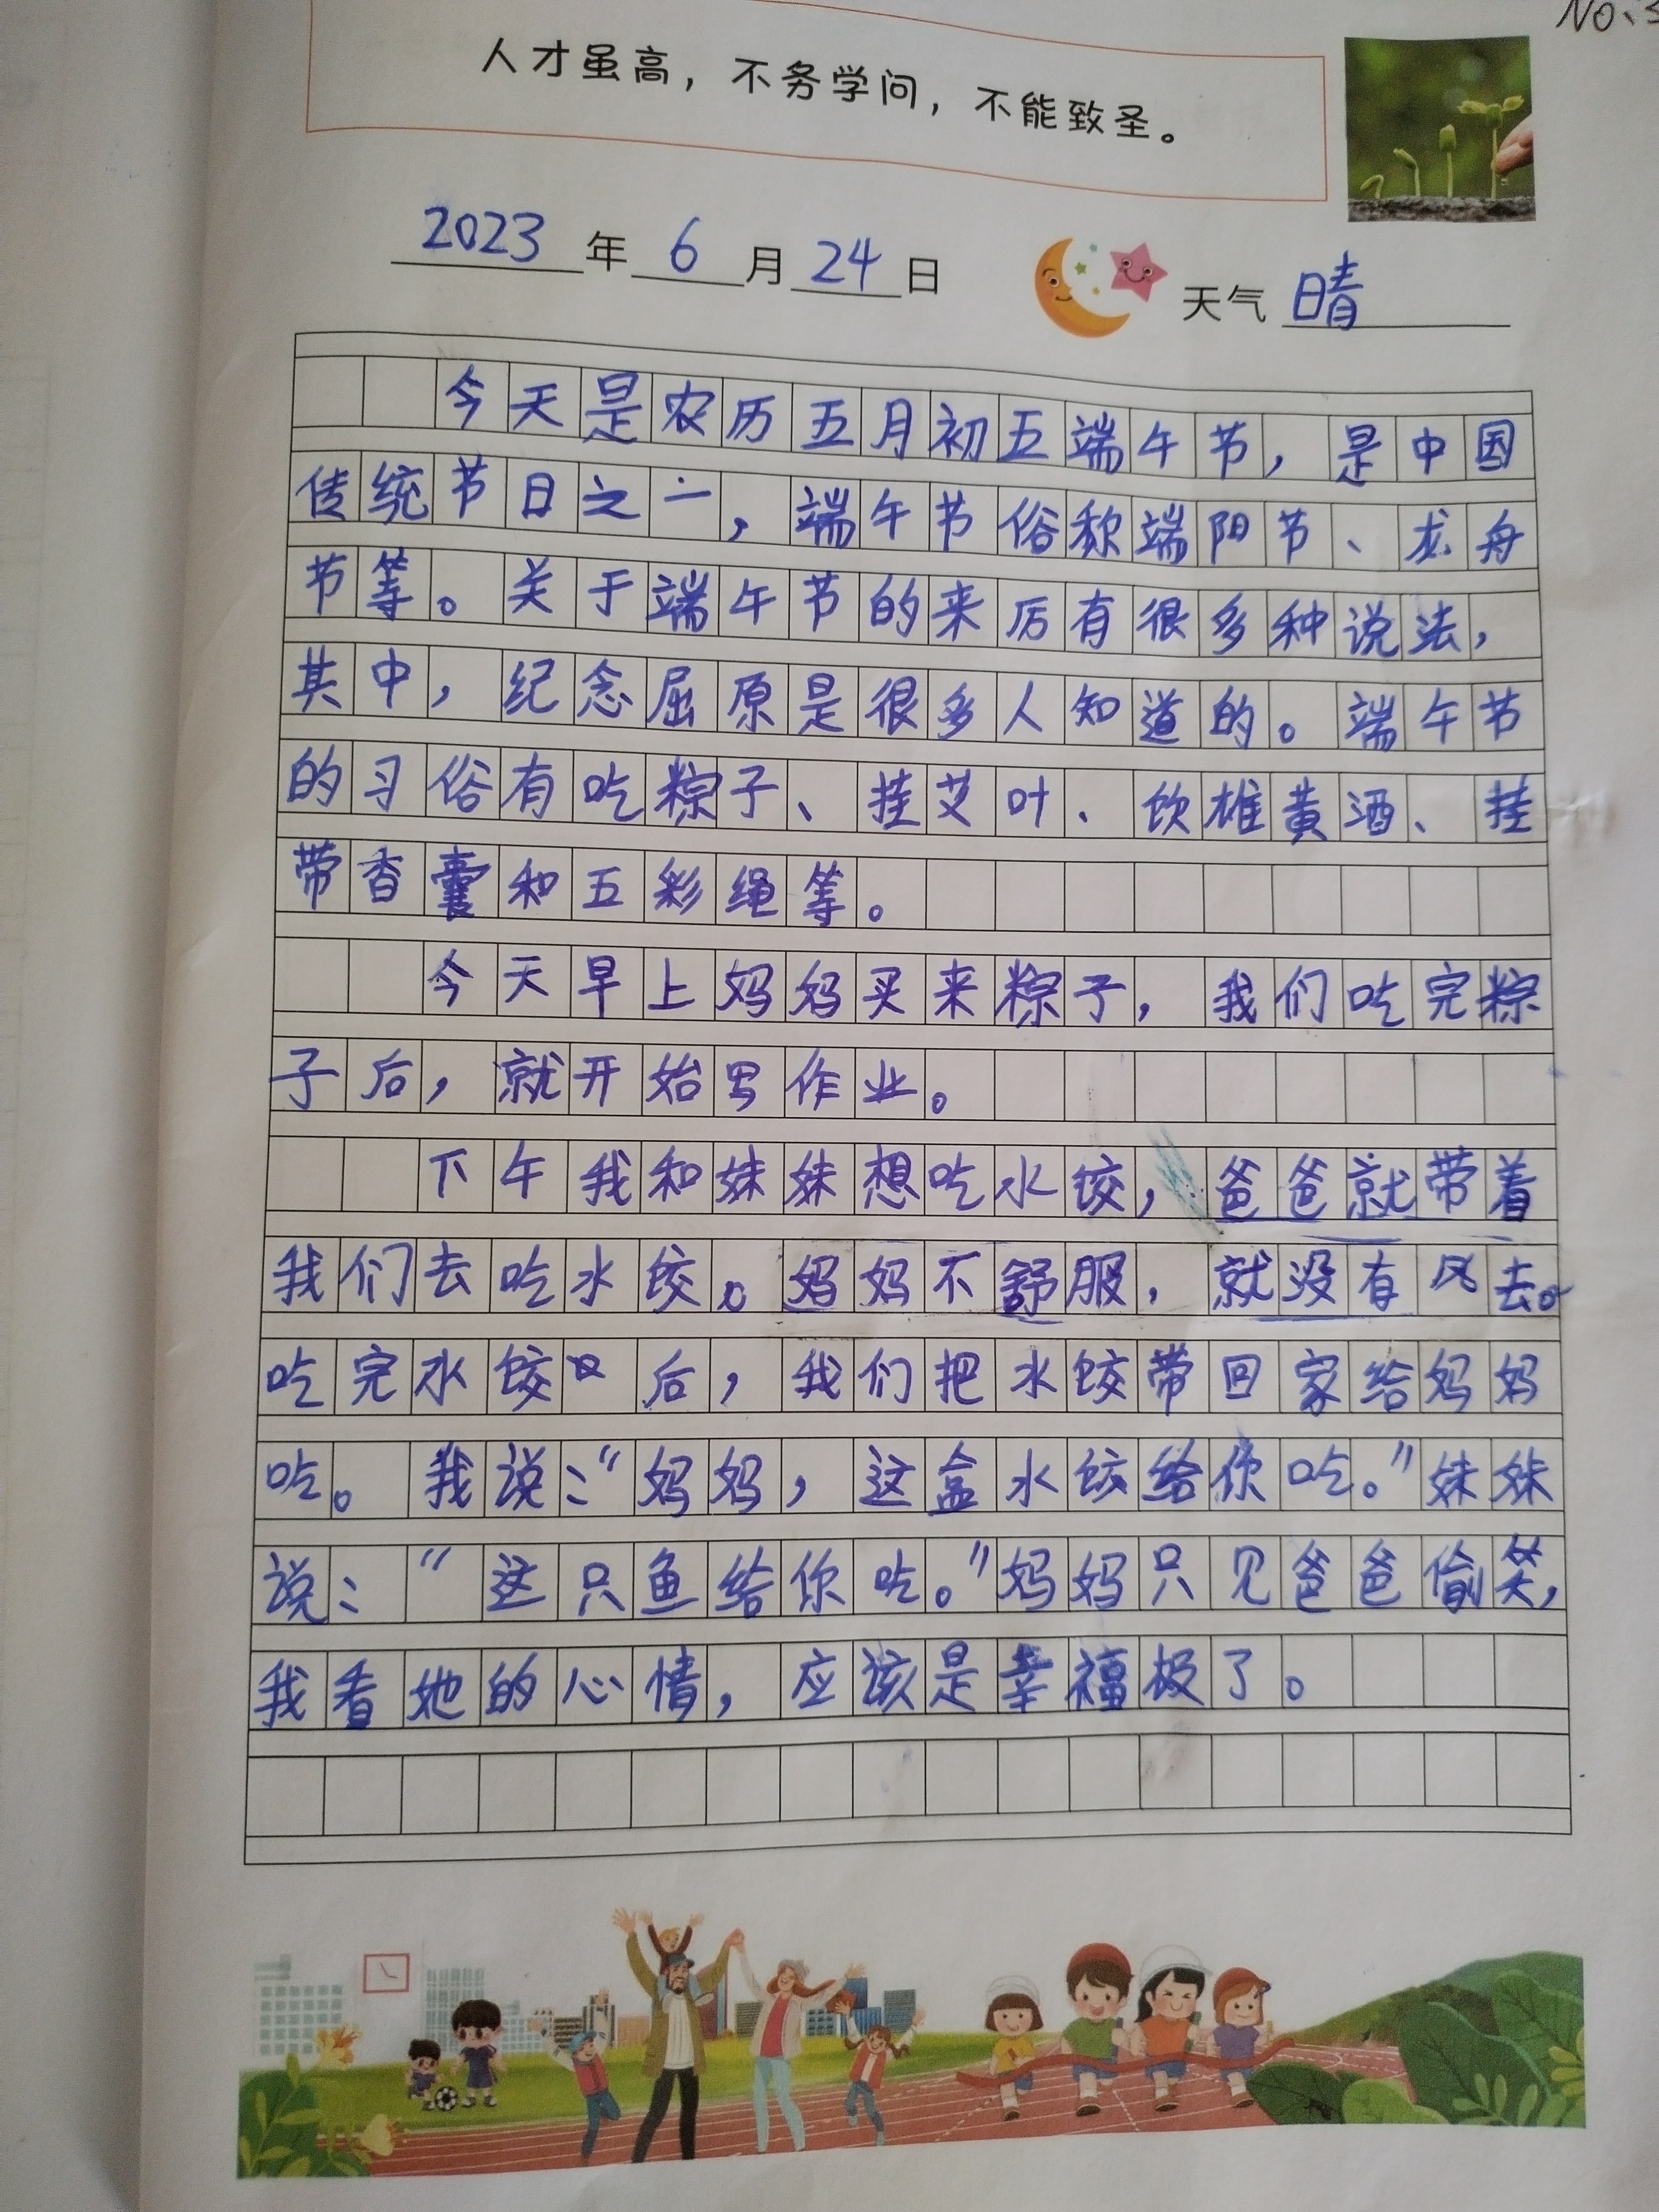 No.3
人才虽高，不务学问，不能致圣。
2023年6月24日 天气 晴
今天是农历五月初五端午节，是中国
传统节日之一，端午节俗称端阳节、龙舟
节等。关于端午节的来历有很多种说法，
其中，纪念屈原是很多人知道的。端午节
的习俗有吃粽子、挂艾叶、饮雄黄酒、挂
带香囊和五彩绳等。
今天早上妈妈买来粽子，我们吃完粽
子后，就开始写作业。
下午我和妹妹想吃水饺，爸爸就带着
我们去吃水饺。妈妈不舒服，就没有去。
吃完水饺后，我们把水饺带回家给妈妈
吃。我说：“妈妈，这盒水饺给你吃。”妹妹
说：“这只鱼给你吃。”妈妈只见爸爸偷笑，
我看她的心情，应该是幸福极了。